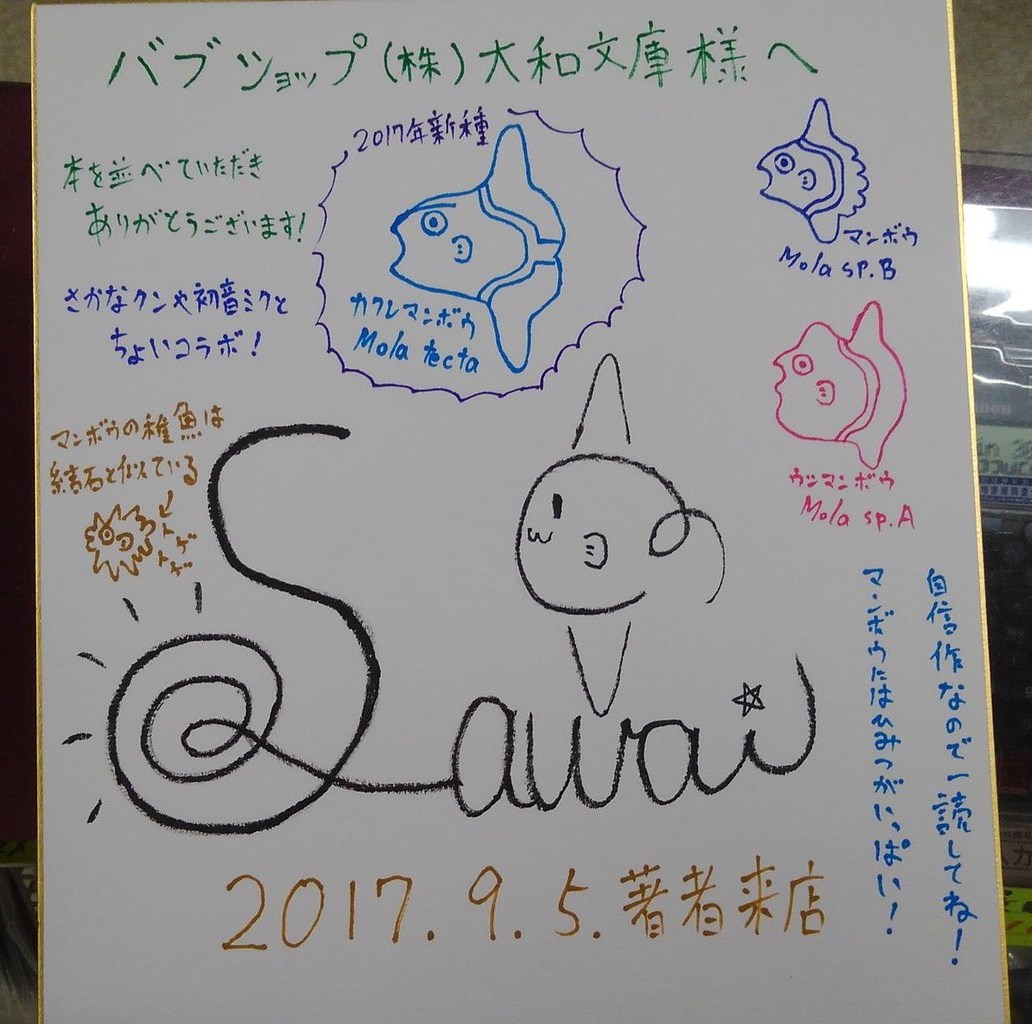 バブショップ(株)大和文庫様へ
本を並べていただき
ありがとうございます!
さかなクンや初音ミクと
ちょいコラボ!
2017年新種
カクレマンボウ
Mola tecta
マンボウ
Mola sp.B
ウシマンボウ
Mola sp.A
マンボウの稚魚は
結石と似ている
トゲ
トゲ
Sawai
自信作なので一読してね!
マンボウにはひみつがいっぱい!
2017.9.5.著者来店